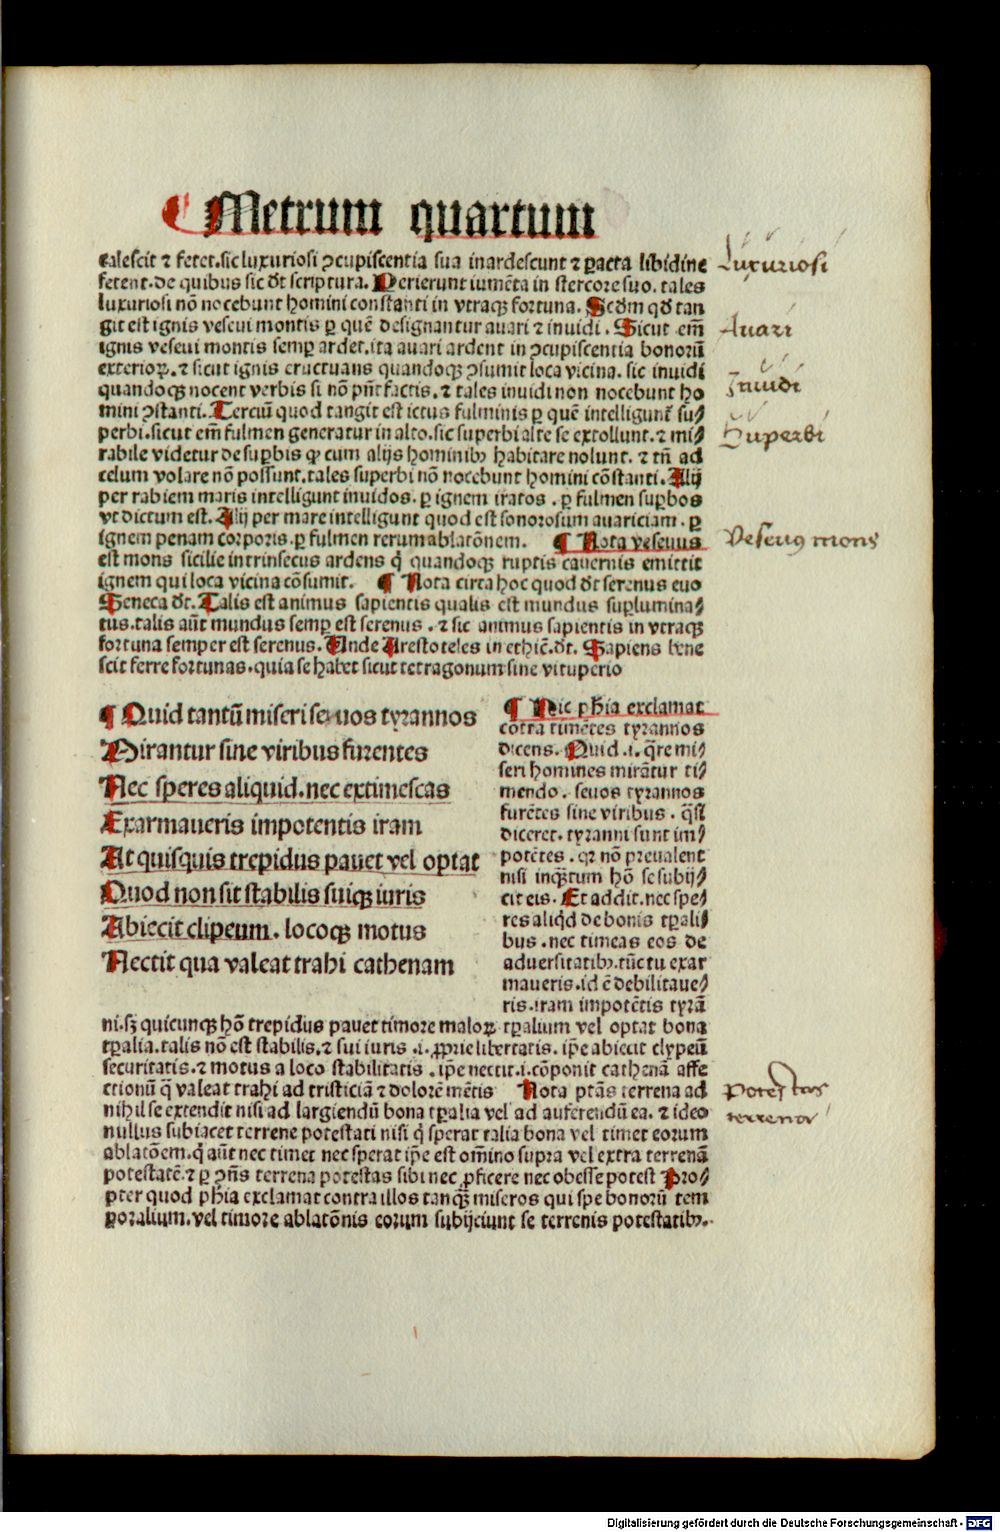 Metrum quartum
calescit ⁊ fetet. sic luxuriosi ꝯcupiscentia sua inardescunt ⁊ ꝑacta libidine
fetent. de quibus sic dr̄ scriptura. Perierunt iumēta in stercore suo. tales
luxuriosi nō nocebunt homini constanti in vtraqꝫ fortuna. Scd̄m qd̓ tan
git est ignis veseui montis ꝑ quē designantur auari ⁊ inuidi. Sicut em̄
ignis veseui montis semꝑ ardet. ita auari ardent in ꝯcupiscentia bonorū
exterioꝝ. ⁊ sicut ignis eructuans quandoqꝫ ꝯsumit loca vicina. sic inuidi
quandoqꝫ nocent verbis si nō pn̄t factis. ⁊ tales inuidi non nocebunt ho
mini ꝯstanti. Terciū quod tangit est ictus fulminis ꝑ quē intelligunt̄ su⸗
perbi. sicut em̄ fulmen generatur in alto. sic superbi alte se extollunt. ⁊ mi⸗
rabile videtur de suꝑbis ꝙ cum alijs hominibꝫ habitare nolunt. ⁊ tn̄ ad
celum volare nō possunt. tales superbi nō nocebunt homini cōstanti. Alij
per rabiem maris intelligunt inuidos. ꝑ ignem iratos. ꝑ fulmen suꝑbos
vt dictum est. Alij per mare intelligunt quod est sonorosum auariciam. ꝑ
ignem penam corporis. ꝑ fulmen rerum ablatōnem. ¶ Nota veseuus
est mons sicilie intrinsecus ardens q̇ quandoqꝫ ruptis cauernis emittit
ignem qui loca vicina cōsumit. ¶ Nota circa hoc quod dr̄ serenus euo
Seneca dt̄. Talis est animus sapientis qualis est mundus suꝑlumina⸗
tus. talis aūt mundus semꝑ est serenus. ⁊ sic animus sapientis in vtraqꝫ
fortuna semper est serenus. Unde Arestoteles in ethic̄. dt̄. Sapiens bene
scit ferre fortunas. quia se habet sicut tetragonum sine vituperio
¶ Quid tantū miseri seuos tyrannos
Mirantur sine viribus furentes
Nec speres aliquid. nec extimescas
Exarmaueris impotentis iram
At quisquis trepidus pauet vel optat
Quod non sit stabilis suiqꝫ iuris
Abiecit clipeum. locoqꝫ motus
Nectit qua valeat trahi cathenam
¶ Hic ph̄ia exclamat
cōtra timētes tyrannos
dicens. Quid .i. q̄re mi⸗
seri homines mirātur ti⸗
mendo. seuos tyrannos
furētes sine viribus. q̄si
diceret. tyranni sunt im⸗
potētes. qꝛ nō preualent
nisi inqꝫtum hō se subij⸗
cit eis. Et addit. nec spe⸗
res aliq̇d de bonis tꝑali⸗
bus. nec timeas eos de
aduersitatibꝫ. tūc tu exar
maueris. id ē debilitaue⸗
ris. iram impotētis tyrā
ni. sꝫ quicunqꝫ hō trepidus pauet timore maloꝝ tꝑalium vel optat bona
tꝑalia. talis nō est stabilis. ⁊ sui iuris .i. ꝓprie libertatis. ip̄e abiecit clypeū
securitatis. ⁊ motus a loco stabilitatis. ip̄e nectit .i. cōponit cathenā affe
ctionū q̄ valeat trahi ad tristiciā ⁊ dolorē mētis Nota ptās terrena ad
nihil se extendit nisi ad largiendū bona tꝑalia vel ad auferendū ea. ⁊ ideo
nullus subiacet terrene potestati nisi q̇ sperat talia bona vel timet eorum
ablatōem. q̇ aūt nec timet nec sperat ip̄e est om̄ino supra vel extra terrenā
potestatē. ⁊ ꝑ ꝯn̄s terrena potestas sibi nec ꝓficere nec obesse potest Pro⸗
pter quod ph̄ia exclamat contra illos tanqꝫ miseros qui spe bonorū tem
poralium. vel timore ablatōnis eorum subijciunt se terrenis potestatibꝫ.
Luxuriosi
Auari
Inuidi
Superbi
Veseuꝯ mons
Potestas
terrena
Digitalisierung gefördert durch die Deutsche Forschungsgemeinschaft - DFG